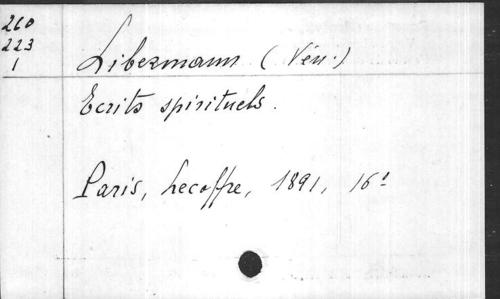 260
223
1
Libermann (Vén.)
Ecrits spirituels.
Paris, Lecoffre, 1891, 16º